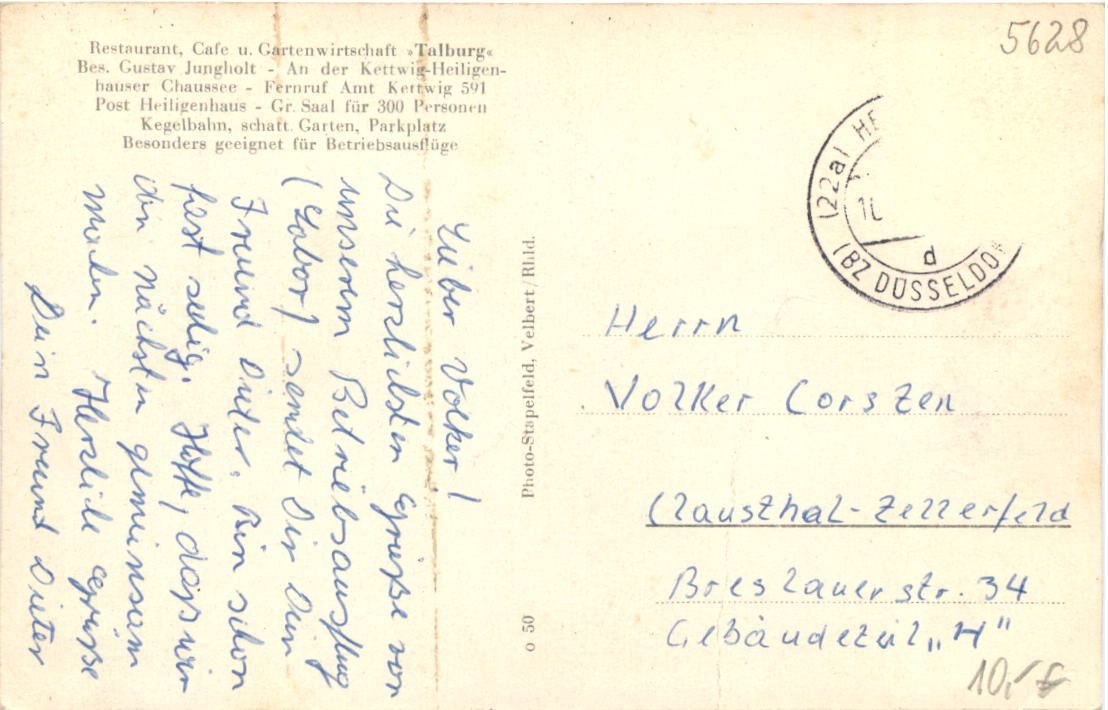 Restaurant, Cafe u. Gartenwirtschaft »Talburg«
Bes. Gustav Jungholt - An der Kettwig-Heiligen-
hauser Chaussee - Fernruf Amt Kettwig 591
Post Heiligenhaus - Gr. Saal für 300 Personen
Kegelbahn, schatt. Garten, Parkplatz
Besonders geeignet für Betriebsausflüge
Lieber Volker!
Die herzlichsten Grüße von
unserem Betriebsausflug
(Labor) sendet Dir Dein
Freund Dieter. Bin schon
fast selig. Hoffe, dass wir
den nächsten gemeinsam
machen. Herzliche Grüße
Dein Freund Dieter
Photo-Stapelfeld, Velbert/Rhld.
o 50
5628
(22a) HE
d
(BZ DÜSSELDO
Herrn
Volker Corszen
Clausthal-Zellerfeld
Breslauer str. 34
Gebäudeteil „H"
10,-